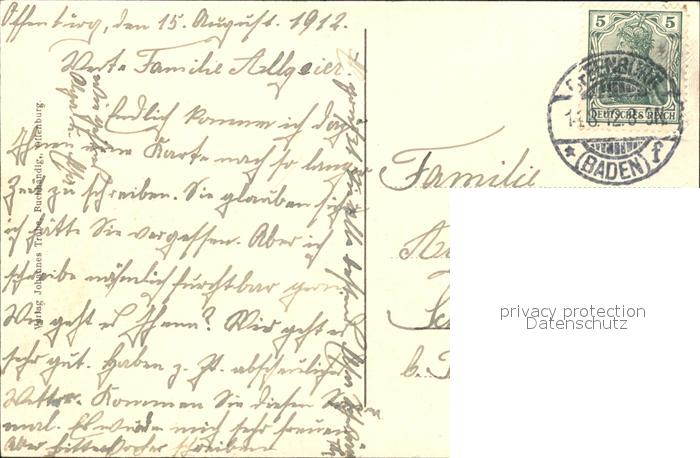 Offenburg, den 15. August. 1912.
Werte Familie Allgeier!
Endlich komme ich dazu
Ihnen eine Karte nach so langer
Zeit zu schreiben. Sie glauben sicher
ich hätte Sie vergessen. Aber ich
schreibe nämlich furchtbar gern.
Wie geht es Ihnen? Mir geht es
sehr gut. Haben z. Zt. abscheuliches
Wetter. Kommen Sie diesen
mal. Es würde mich sehr freuen
Aber bitte vorher schreiben
Es grüßt Sie alle
Verlag Johannes Trube, Buchhandlg., Offenburg.
5 5
DEUTSCHES REICH
OFFENBURG
12.8-9N.
* (BADEN) f
Familie
b.
privacy protection
Datenschutz